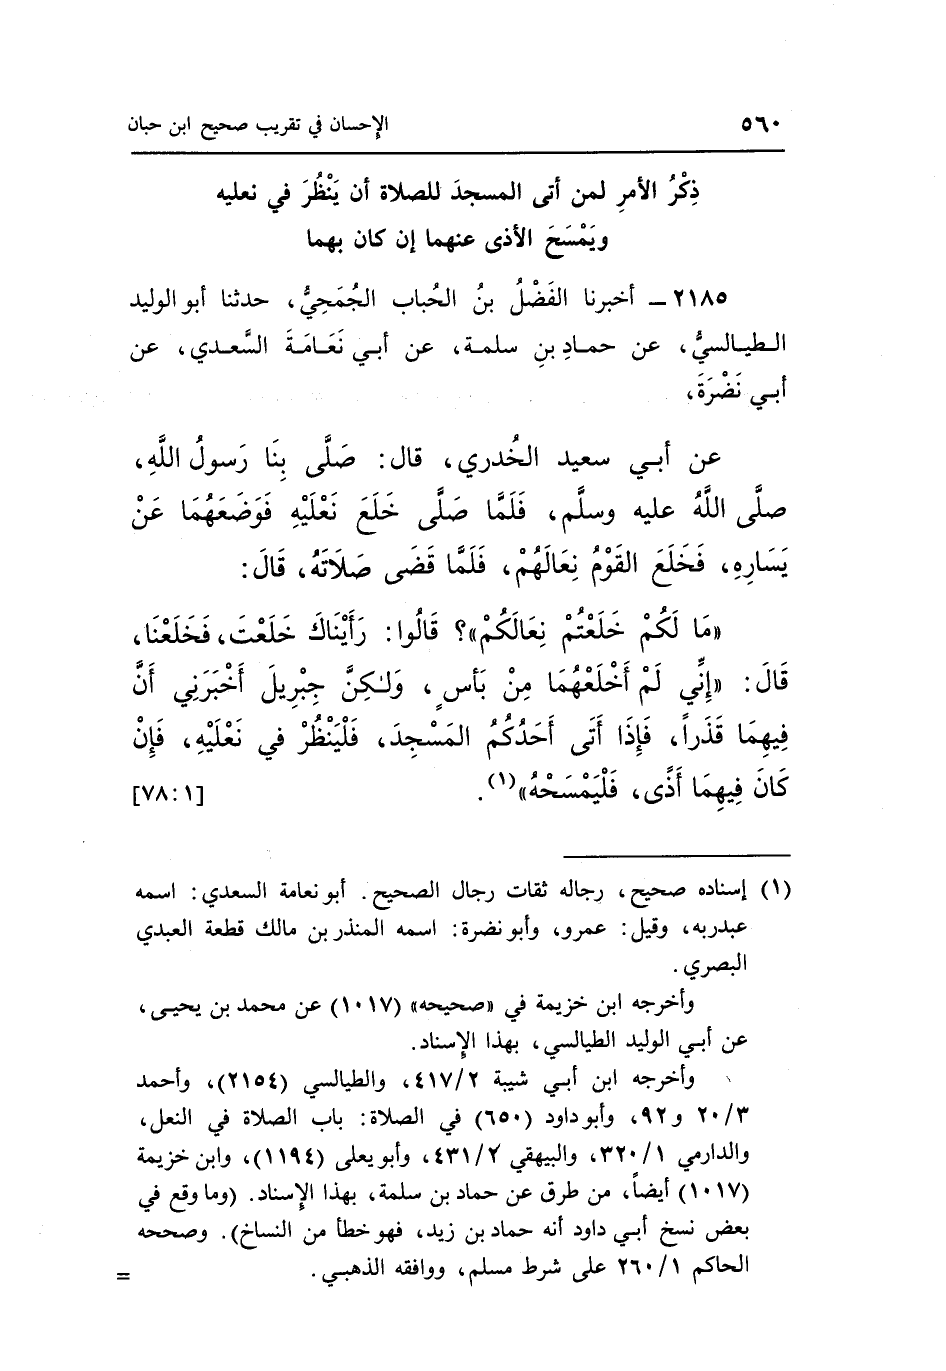 ٥٦٠ الإحسان في تقريب صحيح ابن حبان
ذِكْرُ الأمرِ لمن أتى المسجدَ للصلاة أن يَنْظُرَ في نعليه
ويَمْسَحَ الأذى عنهما إن كان بهما
٢١٨٥ ـ أخبرنا الفَضْلُ بنُ الحُباب الجُمَحِيُّ، حدثنا أبو الوليد
الطيالسيُّ، عن حمادِ بنِ سلمة، عن أبي نَعَامَةَ السَّعدي، عن
أبي نَضْرَةَ،
عن أبي سعيد الخُدري، قال: صَلَّى بِنَا رَسولُ اللَّهِ،
صلَّى اللَّهُ عليه وسلَّم، فَلَمَّا صَلَّى خَلَعَ نَعْلَيْهِ فَوَضَعَهُمَا عَنْ
يَسَارِهِ، فَخَلَعَ القَوْمُ نِعَالَهُمْ، فَلَمَّا قَضَى صَلَاتَهُ، قَالَ:
«مَا لَكُمْ خَلَعْتُمْ نِعَالَكُمْ»؟ قَالُوا: رَأَيْنَاكَ خَلَعْتَ، فَخَلَعْنَا،
قَالَ: «إِنِّي لَمْ أَخْلَعْهُمَا مِنْ بَأسٍ، وَلٰكِنَّ جِبْرِيلَ أَخْبَرَنِي أَنَّ
فِيهِمَا قَذَراً، فَإِذَا أَتَى أَحَدُكُمُ المَسْجِدَ، فَلْيَنْظُرْ في نَعْلَيْهِ، فَإِنْ
كَانَ فِيهِمَا أَذًى، فَلْيَمْسَحْهُ»(١). [١ : ٧٨]
(١) إسناده صحيح، رجاله ثقات رجال الصحيح. أبو نعامة السعدي: اسمه
عبدربه، وقيل: عمرو، وأبو نضرة: اسمه المنذر بن مالك قطعة العبدي
البصري.
وأخرجه ابن خزيمة في «صحيحه» (١٠١٧) عن محمد بن يحيى،
عن أبي الوليد الطيالسي، بهذا الإسناد.
وأخرجه ابن أبي شيبة ٤١٧/٢، والطيالسي (٢١٥٤)، وأحمد
٢٠/٣ و٩٢، وأبو داود (٦٥٠) في الصلاة: باب الصلاة في النعل،
والدارمي ٣٢٠/١، والبيهقي ٤٣١/٢، وأبو يعلى (١١٩٤)، وابن خزيمة
(١٠١٧) أيضاً، من طرق عن حماد بن سلمة، بهذا الإسناد. (وما وقع في
بعض نسخ أبي داود أنه حماد بن زيد، فهو خطأ من النساخ). وصححه
الحاكم ٢٦٠/١ على شرط مسلم، ووافقه الذهبي. =